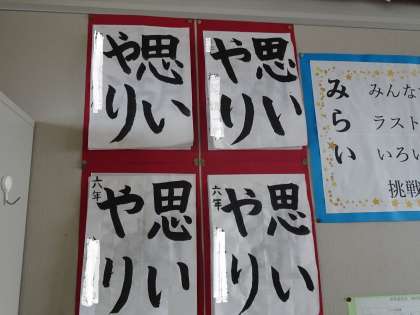 思い
やり
思い
やり
思い
やり
六年
思い
やり
六年
みらい
みんな
ラスト
いろい
挑戦